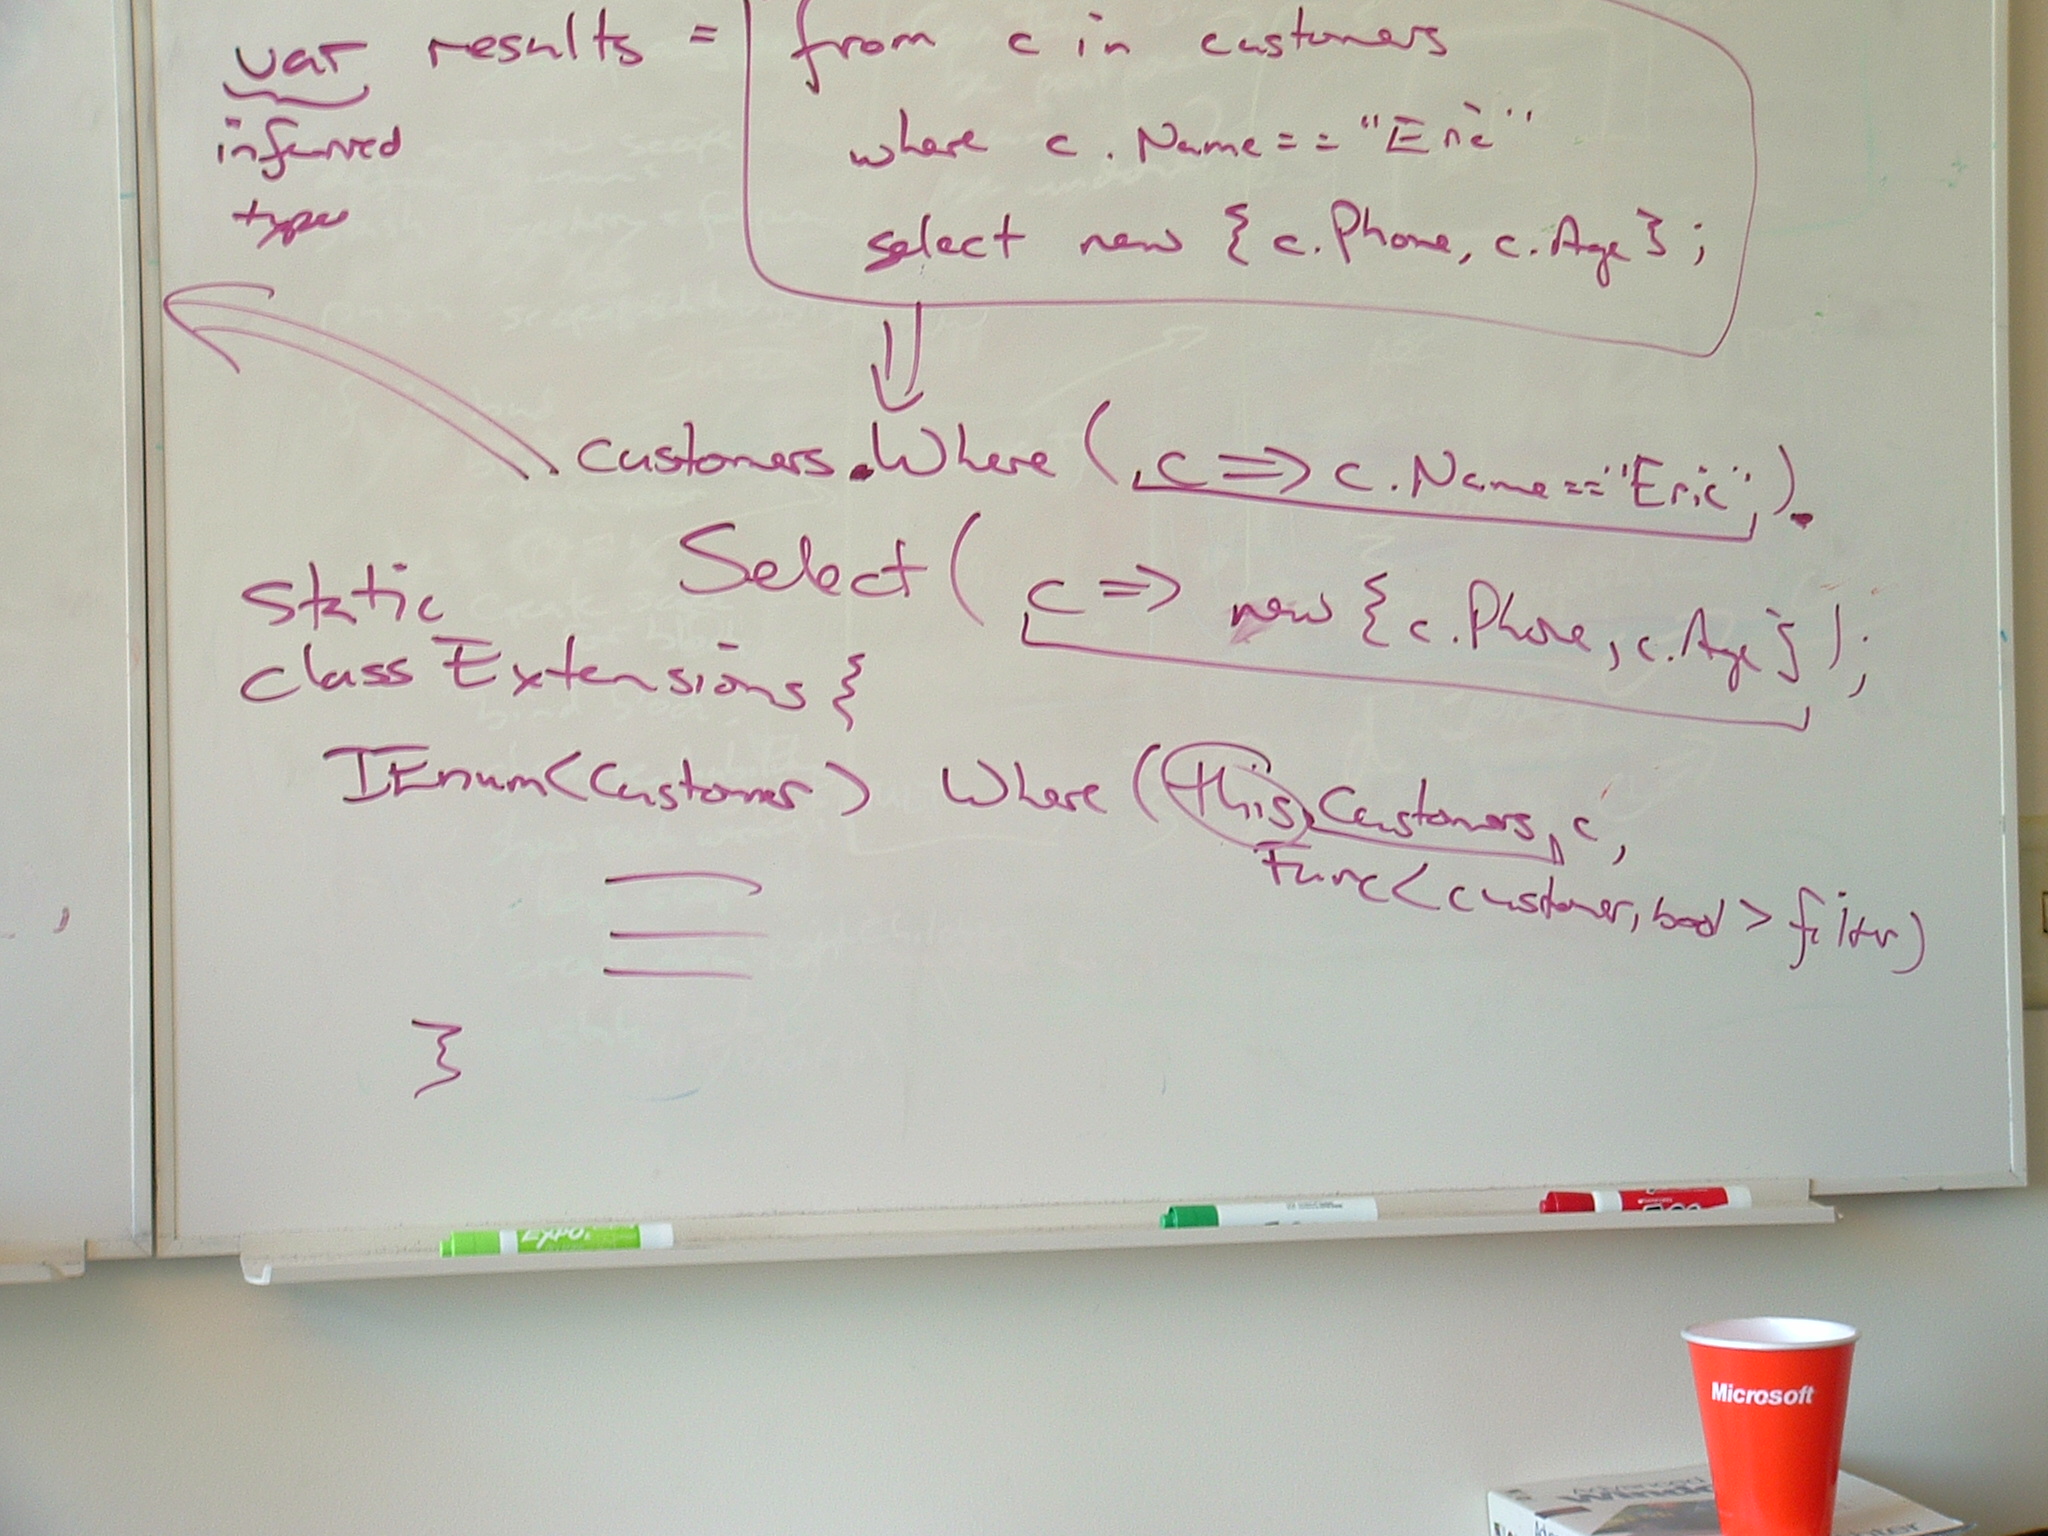 var results = from c in customers
inferred where c.Name == "Eric"
type select new { c.Phone, c.Age } ;
customers.Where ( c => c.Name == "Eric" ).
Select ( c => new { c.Phone, c.Age } ) ;
static
class Extensions {
IEnum<Customer> Where ( this Customers c,
Func<customer, bool> filter)
}
EXPO.
Microsoft
Advanced